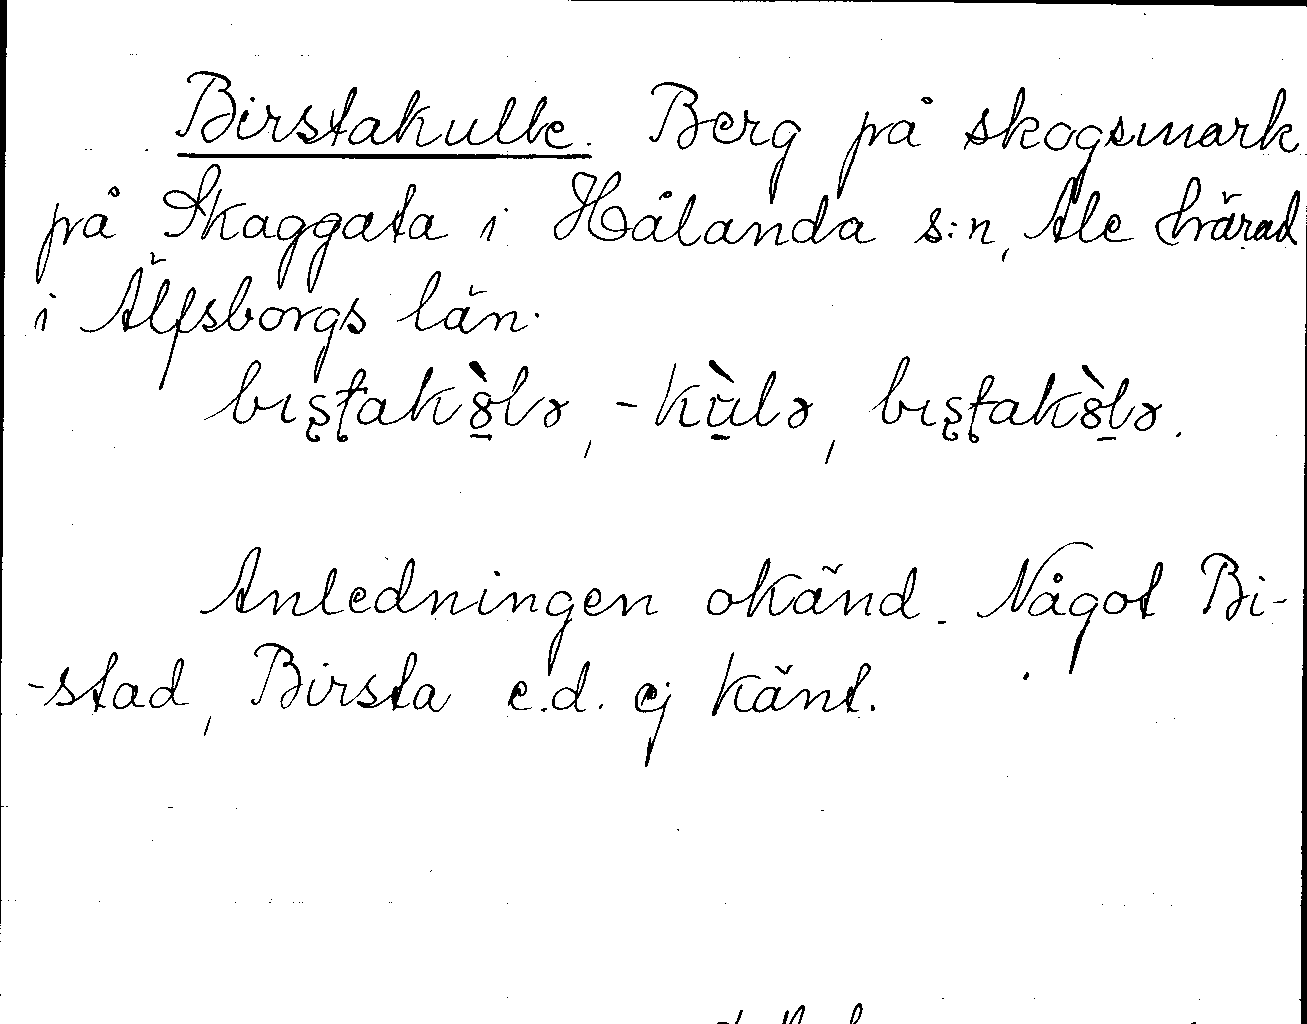 Birstakulle. Berg på skogsmark
på Skaggata i Hålanda s:n, Ale härad
i Älfsborgs län.
bıʂʈak8̠̀lə, -kù̠lə, bıʂʈak8̠̀lə.
Anledningen okänd. Något Bi-
-stad, Birsta e.d. ej känt.